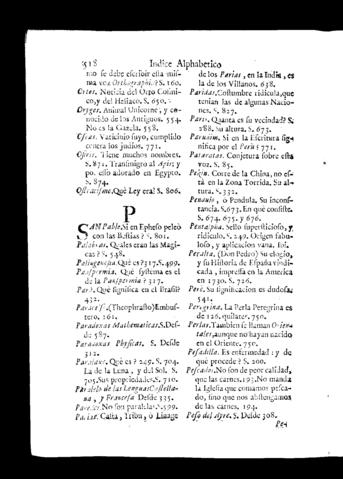 518 Indice Alphabetico
mo se debe escribir esta mis-
ma voz Orthographi.? S. 160.
Ortos. Noticia del Orto Cosmi-
co, y del Heliaco. S. 650.
Oryges. Animal Unicorne, y co-
nocido de los Antiguos. 554.
No es la Gazela. 558.
Oseas. Vaticinio suyo, cumplido
contra los judios. 771.
Osiris. Tiene muchos nombres.
S. 871. Transmigrò al Apis; y
po. esso adorado en Egypto.
S. 874.
Ostracismo. Què Ley era? S. 806.
P
SAN Pablo. Si en Epheso peleò
con las Bestias? S. 801.
Palabras. Quales eran las Magi-
cas? S. 548.
Palingenesia. Què es? 317. S. 499.
Panspermia. Què systema es el
de la Panspermia? 317.
Què significa en el Brasil?
432.
(Theophrasto) Embus-
tero. 161.
Paradoxas Mathematicas. S. Des-
de 587.
Paradoxas Physicas. S. Desde
312.
Què es? 249. S. 704.
La de la Luna, y del Sol. S.
705. Sus propiedades. S. 710.
Paralelo de las Lenguas Castella-
na, y Francesa Desde 335.
No son paralelas. 599.
Casta, Tribu, ò Linage
de los Parias, en la India, es
la de los Villanos. 638.
Paridas. Costumbre ridicula, que
tenian las de algunas Nacio-
nes. S. 827.
Paris. Quanta es su vecindad? S.
288. Su altura. S. 673.
Parvaim. Si en la Escritura sig-
nifica por el Perù? 771.
Conjetura sobre esta
voz. S. 85.
Pekin. Corte de la China, no es-
tà en la Zona Torrida. Su al-
tura. S. 332.
o Pendula. Su incons-
tancia. S. 673. En què consiste.
S. 674. 675. y 676.
Pentalpha. Sello supersticioso, y
ridiculo. S. 249. Origen fabu-
loso, y aplicacion vana. Ibi.
Peralta. (Don Pedro) Su elogio,
y su Historia de España vindi-
cada, impressa en la America
en 1730. S. 726.
Peri. Su significacion es dudosa.
541.
Peregrina. La Perla Peregrina es
de 126. quilates. 750.
Perlas. Tambien se llaman Orien-
tales, aunque no hayan nacido
en el Oriente. 750.
Pesadilla. Es enfermedad; y de
què procede? S. 200.
Pescados. No son de peor calidad,
que las carnes. 193. No manda
la Iglesia que comamos pesca-
do, sino que nos abstengamos
de las carnes. 194.
Peso del Ayre. S. Desde 308.
Pes